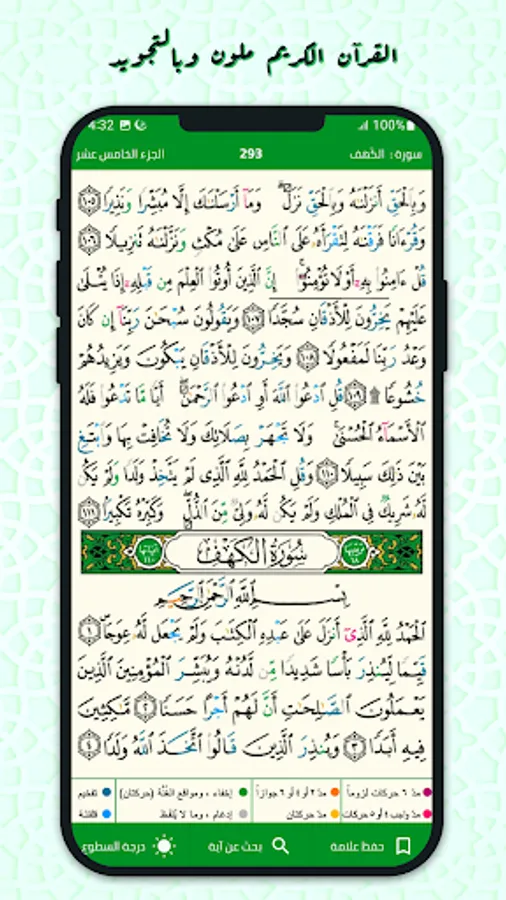 القرآن الكريم ملون وبالتجويد
4:32 100%
سورة: الكهف 293 الجزء الخامس عشر
وَبِالْحَقِّ أَنزَلْنَٰهُ وَبِالْحَقِّ نَزَلَ ۗ وَمَآ أَرْسَلْنَٰكَ إِلَّا مُبَشِّرًا وَنَذِيرًا ١٠٥
وَقُرْءَانًا فَرَقْنَٰهُ لِتَقْرَأَهُۥ عَلَى ٱلنَّاسِ عَلَىٰ مُكْثٍ وَنَزَّلْنَٰهُ تَنزِيلًا ١٠٦
قُلْ ءَامِنُوا۟ بِهِۦٓ أَوْ لَا تُؤْمِنُوٓا۟ ۚ إِنَّ ٱلَّذِينَ أُوتُوا۟ ٱلْعِلْمَ مِن قَبْلِهِۦٓ إِذَا يُتْلَىٰ
عَلَيْهِمْ يَخِرُّونَ لِلْأَذْقَانِ سُجَّدًا ١٠٧ وَيَقُولُونَ سُبْحَٰنَ رَبِّنَآ إِن كَانَ
وَعْدُ رَبِّنَا لَمَفْعُولًا ١٠٨ وَيَخِرُّونَ لِلْأَذْقَانِ يَبْكُونَ وَيَزِيدُهُمْ
خُشُوعًا ۩ ١٠٩ قُلِ ٱدْعُوا۟ ٱللَّهَ أَوِ ٱدْعُوا۟ ٱلرَّحْمَٰنَ ۖ أَيًّا مَّا تَدْعُوا۟ فَلَهُ
ٱلْأَسْمَآءُ ٱلْحُسْنَىٰ ۚ وَلَا تَجْهَرْ بِصَلَاتِكَ وَلَا تُخَافِتْ بِهَا وَٱبْتَغِ
بَيْنَ ذَٰلِكَ سَبِيلًا ١١٠ وَقُلِ ٱلْحَمْدُ لِلَّهِ ٱلَّذِى لَمْ يَتَّخِذْ وَلَدًا وَلَمْ يَكُن
لَّهُۥ شَرِيكٌ فِى ٱلْمُلْكِ وَلَمْ يَكُن لَّهُۥ وَلِىٌّ مِّنَ ٱلذُّلِّ ۖ وَكَبِّرْهُ تَكْبِيرًا ١١١
سُورَةُ الكَهْفِ
بِسْمِ ٱللَّهِ ٱلرَّحْمَٰنِ ٱلرَّحِيمِ
ٱلْحَمْدُ لِلَّهِ ٱلَّذِىٓ أَنزَلَ عَلَىٰ عَبْدِهِ ٱلْكِتَٰبَ وَلَمْ يَجْعَل لَّهُۥ عِوَجَا ۜ ١
قَيِّمًا لِّيُنذِرَ بَأْسًا شَدِيدًا مِّن لَّدُنْهُ وَيُبَشِّرَ ٱلْمُؤْمِنِينَ ٱلَّذِينَ
يَعْمَلُونَ ٱلصَّٰلِحَٰتِ أَنَّ لَهُمْ أَجْرًا حَسَنًا ٢ مَّٰكِثِينَ
فِيهِ أَبَدًا ٣ وَيُنذِرَ ٱلَّذِينَ قَالُوا۟ ٱتَّخَذَ ٱللَّهُ وَلَدًا ٤
مدّ ٦ حركات لزوماً مدّ ٢ أو ٤ أو ٦ جوازاً إخفاء ، ومواقع الغُنَّة (حركتان) تفخيم
مدّ واجب ٤ أو ٥ حركات مدّ حركتان إدغام ، وما لا يُلفَظ قلقلة
حفظ علامة بحث عن آية درجة السطوع